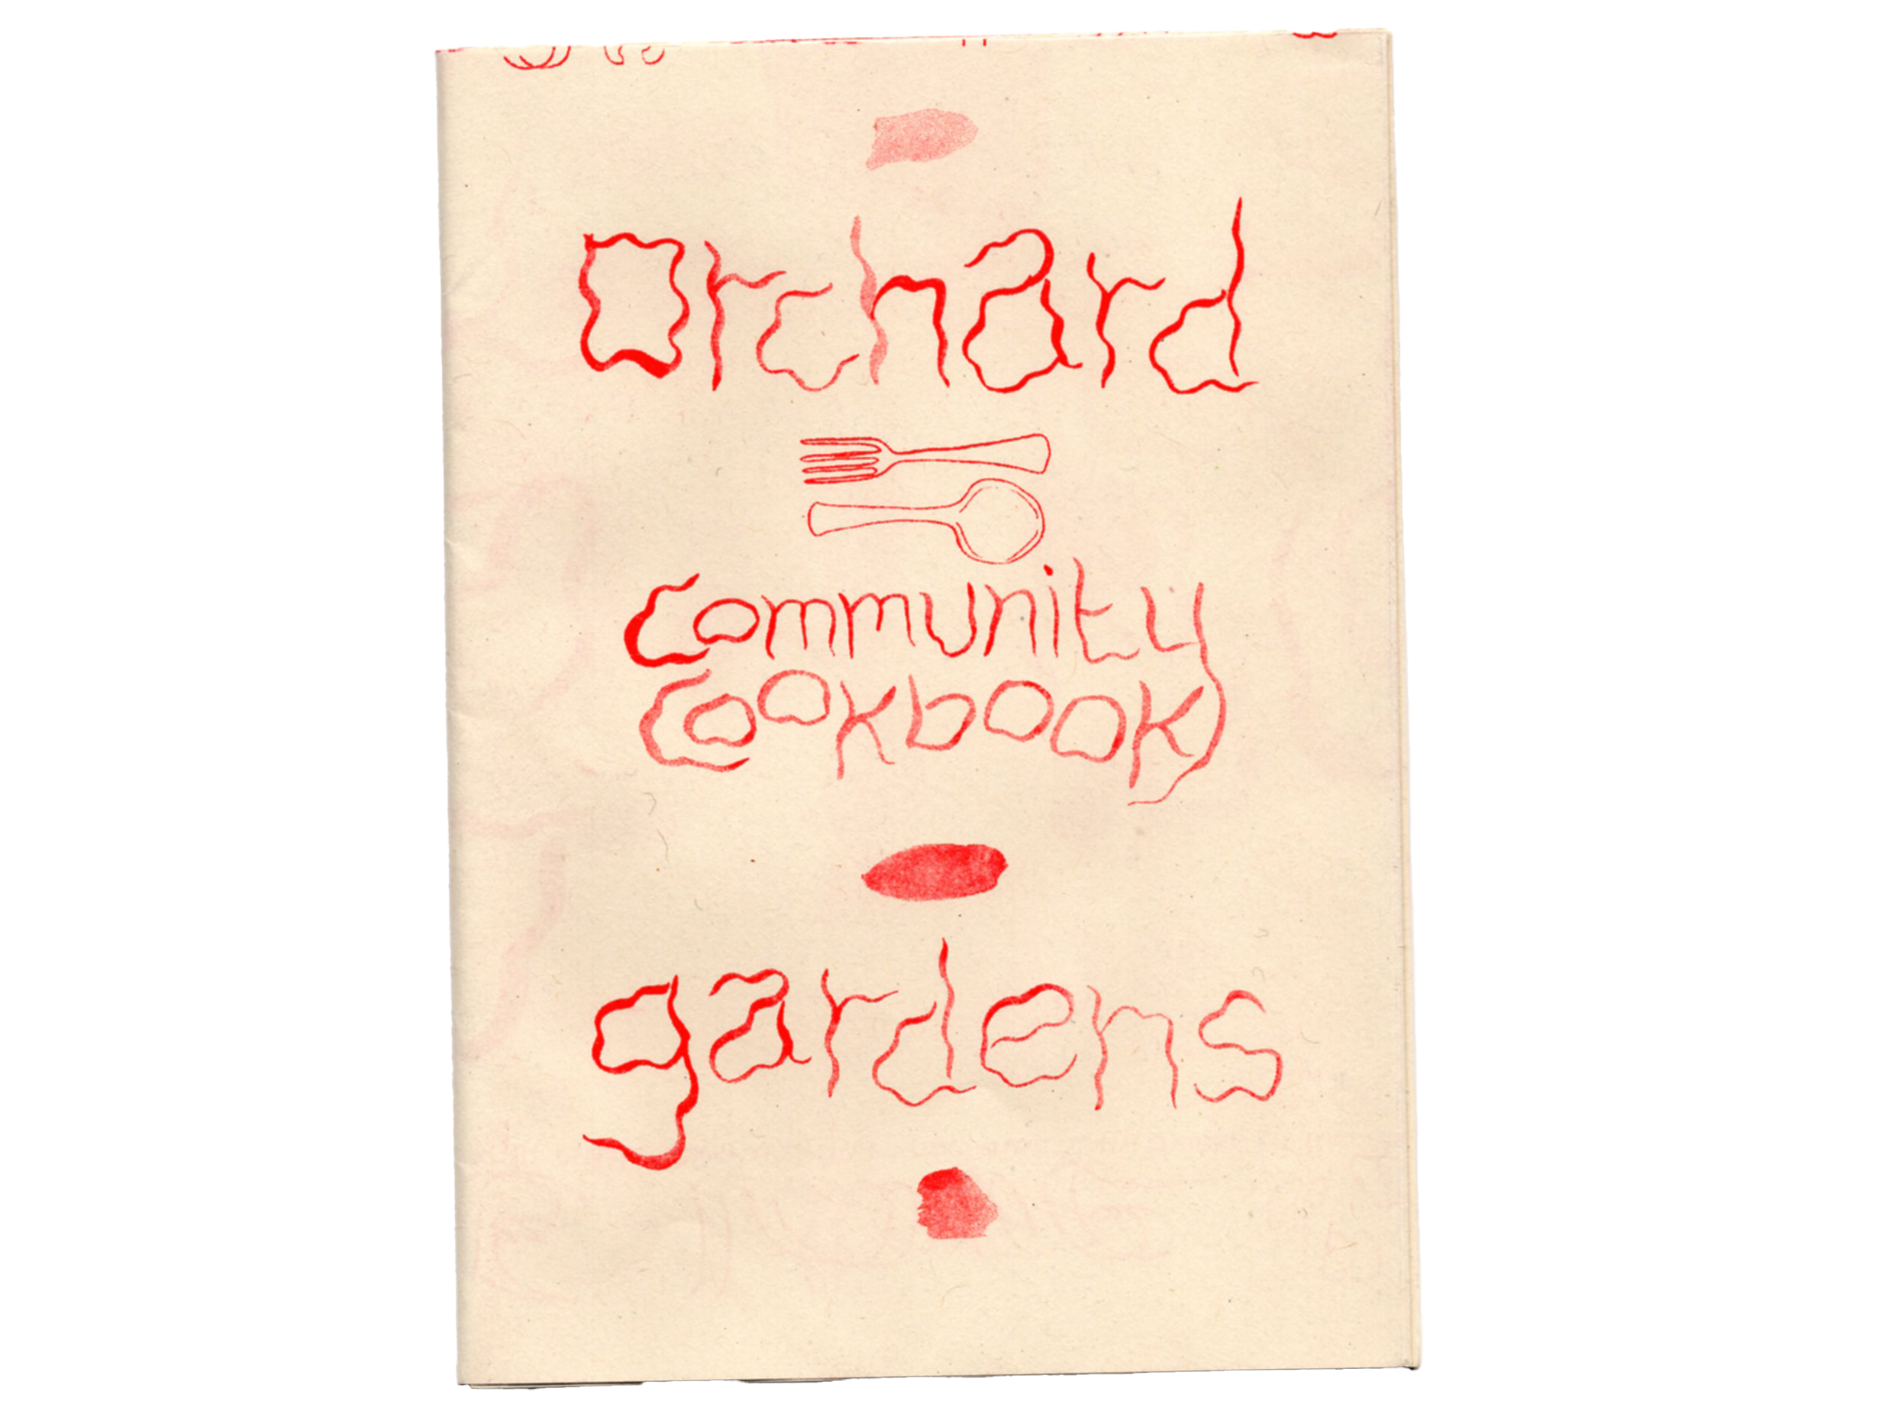 Orchard
Community
Cookbook
gardens